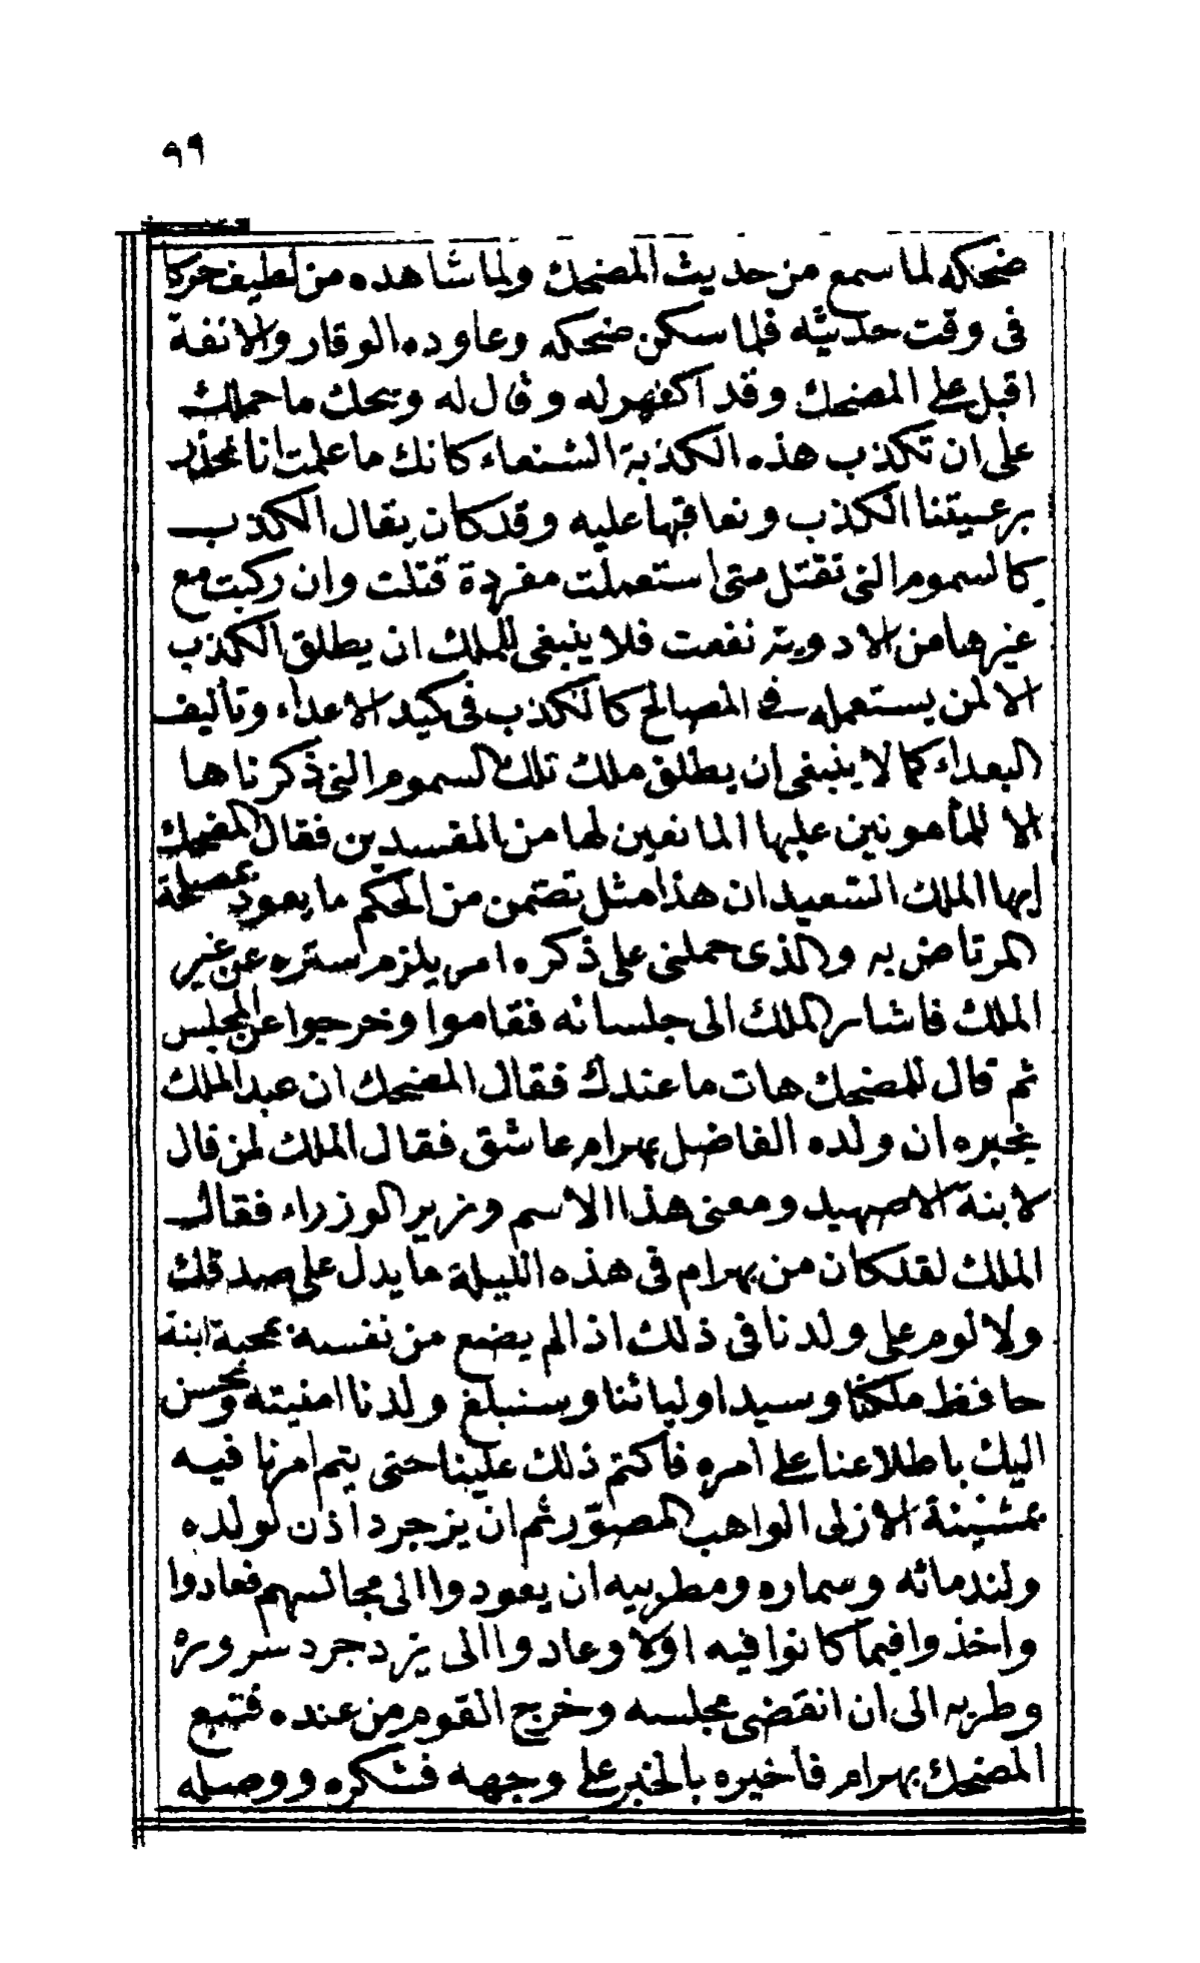 ٩٩
ضحكه لما سمع من حديث المضحك ولما شاهده من لطيف حركا
فى وقت حديثه فلما سكن ضحكه وعاوده الوقار والانفة
اقبل على المضحك وقد اكفهر له وقال له ويحك ما حملك
على ان تكذب هذه الكذبة الشنعاء كانك ما علمت انا نحذر
برعيتنا الكذب ونعاقبها عليه وقد كان يقال الكذب
كالسموم التى تقتل متى استعملت مفردة قتلت وان ركبت مع
غيرها من الادوية نفعت فلا ينبغى للملك ان يطلق الكذب
الا لمن يستعمله فى المصالح كالكذب فى كيد الاعداء وتأليف
البعداء كما لا ينبغى ان يطلق ملك تلك السموم التى ذكرناها
الا للمأمونين عليها المانعين لها من المفسدين فقال المضحك
ايها الملك السعيد ان هذا مثل تضمن من الحكم ما يعود بمصلحة
المرتاض به والذى حملنى على ذكره امر يلزم ستره عن غير
الملك فاشار الملك الى جلسائه فقاموا وخرجوا عن المجلس
ثم قال للمضحك هات ما عندك فقال المضحك ان عبد الملك
يخبره ان ولده الفاضل بهرام عاشق فقال الملك لمن قال
لابنة الاصهبد ومعنى هذا الاسم وزير الوزراء فقال
الملك لقد كان من بهرام فى هذه الليلة ما يدل على صدقك
ولا لوم على ولدنا فى ذلك اذ الم يضع من نفسه بمحبة ابنة
حافظ ملكنا وسيد اوليائنا وسنبلغ ولدنا امنيته ونحسن
اليك باطلاعنا على امره فاكتم ذلك علينا حتى يتم امرنا فيه
بمشيئة الازلى الواهب المصور ثم ان يزجرد اذن لولده
ولندمائه وسماره ومطربيه ان يعودوا الى مجالسهم فعادوا
واخذوا فيما كانوا فيه اولا وعادوا الى يزدجرد سروره
وطربه الى ان انقضى مجلسه وخرج القوم من عنده فتبع
المضحك بهرام فأخبره بالخبر على وجهه فشكره ووصله